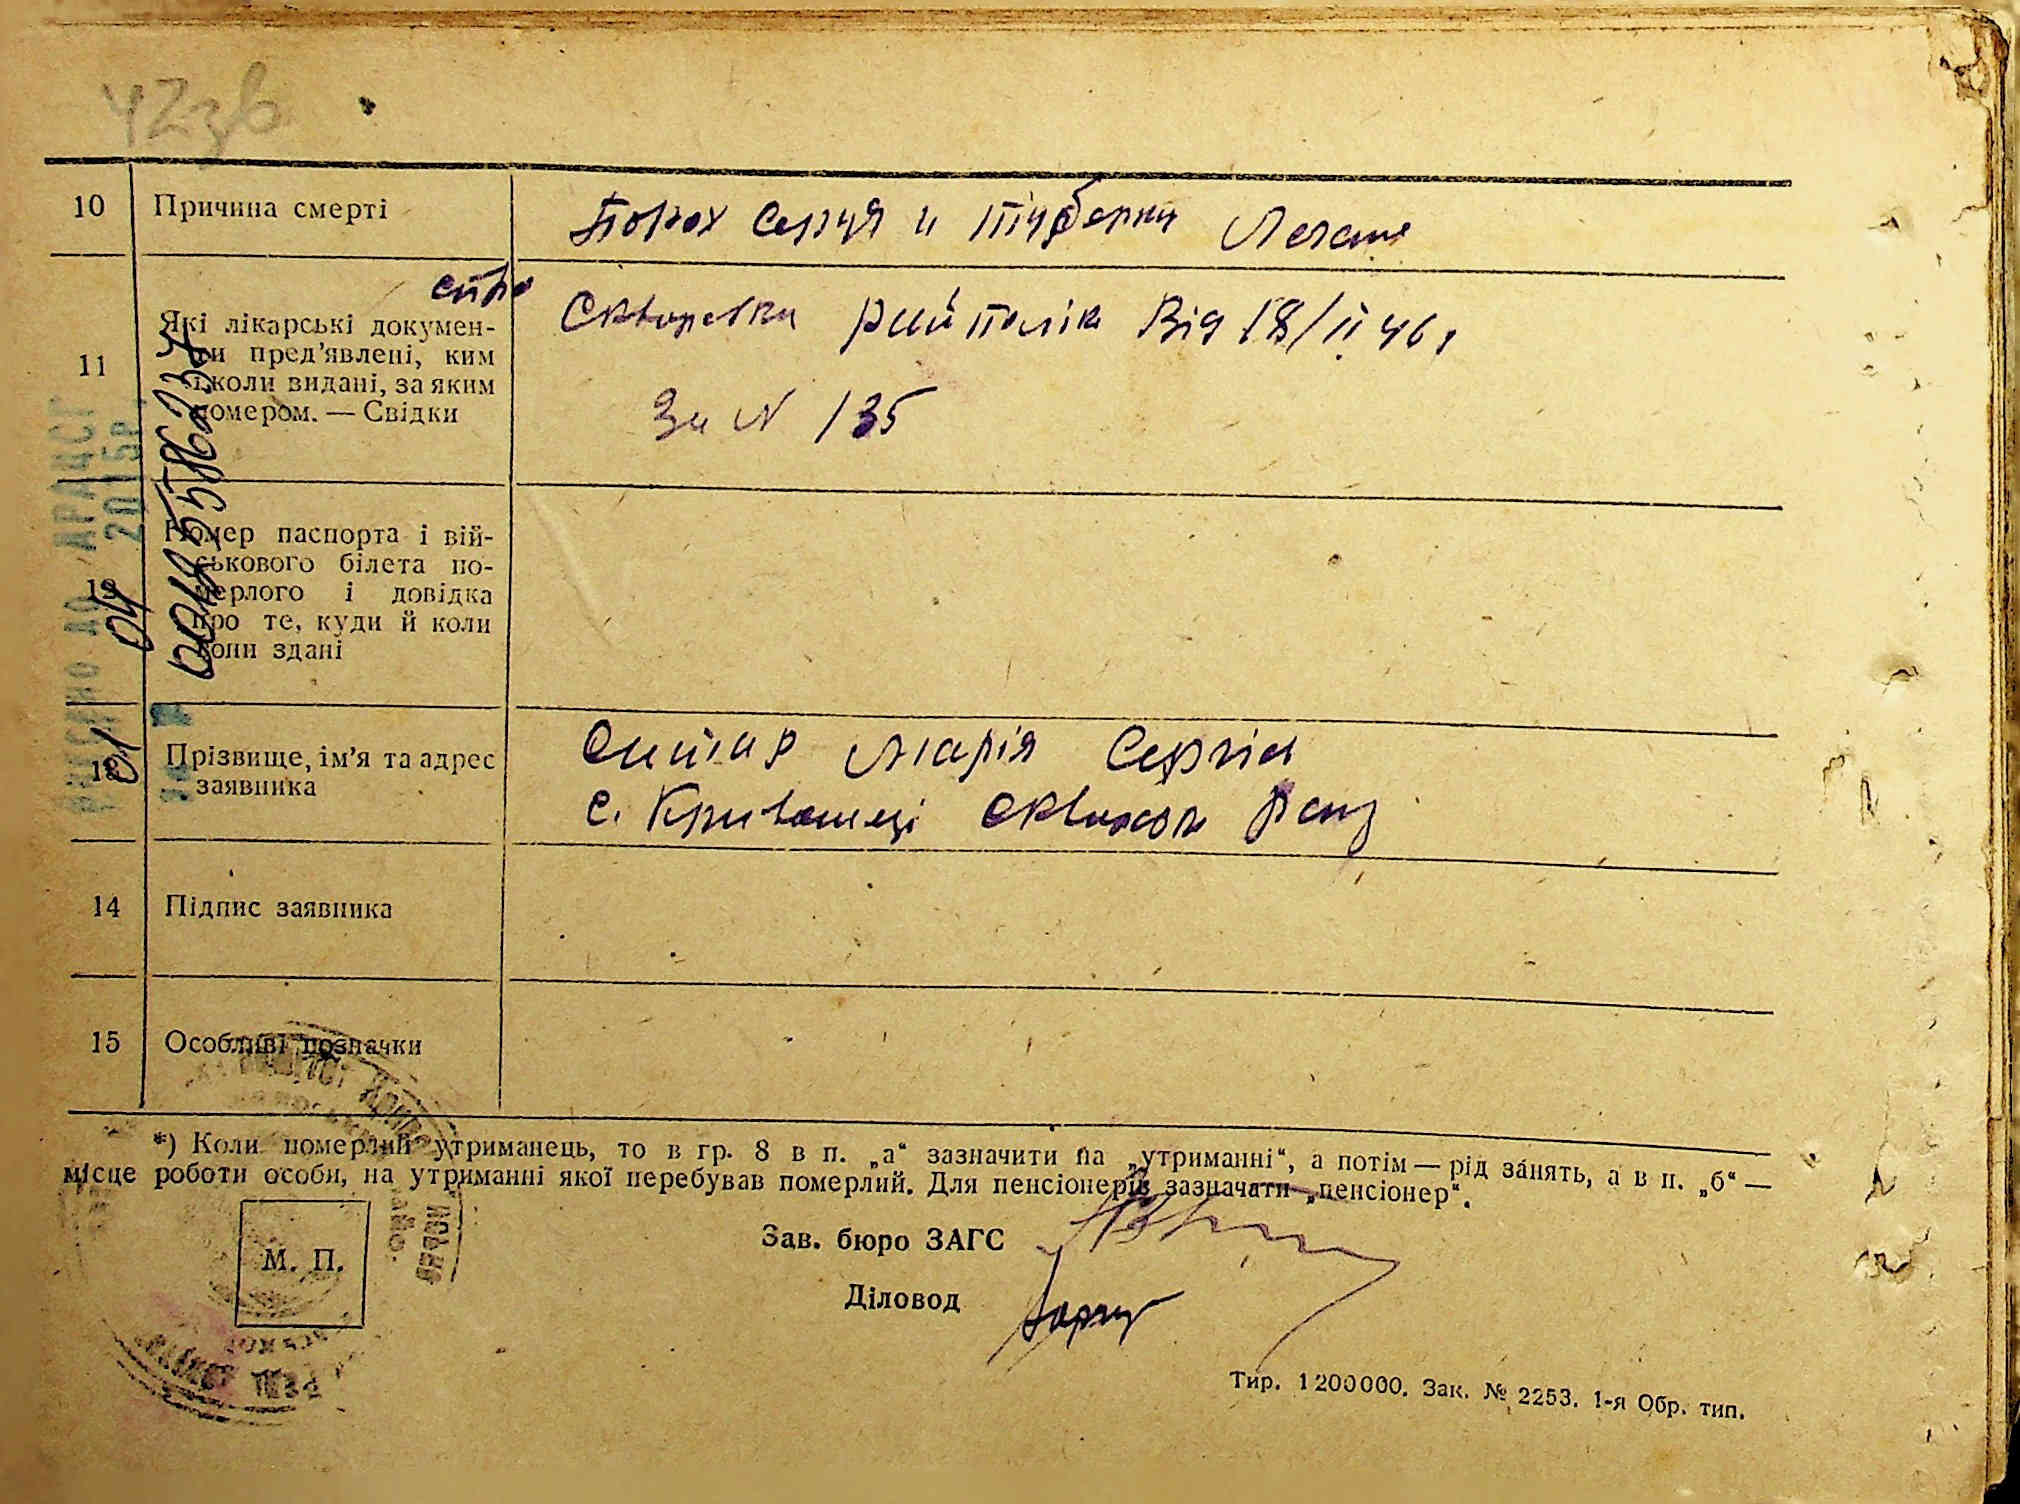 42зв
10 Причина смерті
Порох Серця и тубэркл Легень
11 Які лікарські докумен-
ти пред'явлені, ким
і коли видані, за яким
номером. — Свідки
Сквирська рай полік Від 18/ІІ 46 р
За N 135
12 Номер паспорта і вій-
ськового білета по-
мерлого і довідка
про те, куди й коли
вони здані
00185586237
ВНЕСЕНО ДО ДРАЦСГ
01 04 2015р.
13 Прізвище, ім'я та адрес
заявника
Ситар Марія Сергіи
с. Кривошеїі Сквирсок Рай
14 Підпис заявника
15 Особливі позначки
*) Коли померлий утриманець, то в гр. 8 в п. „а“ зазначити на „утриманні“, а потім — рід занять, а в п. „б“ —
місце роботи особи, на утриманні якої перебував померлий. Для пенсіонерів зазначати „пенсіонер“.
М. П.
Зав. бюро ЗАГС
Діловод
Тир. 1200000. Зак. № 2253. 1-я Обр. тип.